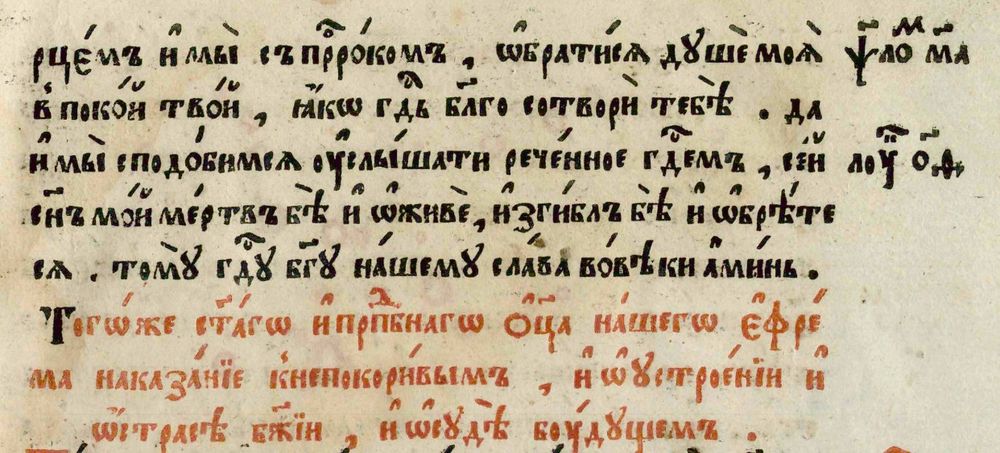 рцє́мъ и҆ мы̀ съ прⷪ҇ро́комъ, ѡ҆братисѧ̀ дꙋшѐ моѧ̀ ѱаⷧ҇ло́ⷨ м҃а
в̾ поко́й тво́й, ꙗ҆́кѡ гдⷭ҇ь бл҃го сотворѝ тебѣ̀. да
и҆ мы̀ сподо́бимсѧ оу҆слы́шати рече́нное гдⷭ҇емъ, се́й лоуⷦ҇ о҃ѳ
сн҃ъ мо́й ме́ртвъ бѣ̀ и҆ ѡ҆живѐ, и҆зги́блъ бѣ̀ и҆ ѡ҆брѣ́те
сѧ. томꙋ̀ гдⷭ҇ꙋ бг҃ꙋ на́шемꙋ сла́ва во вѣ́ки а҆ми́нь.
Тогѡ́же ст҃а́гѡ и҆ прпⷣбнагѡ ѻ҆ц҃а на́шегѡ є҆фре́
ма наказа́нїе к̾ непокори́вымъ, и҆ ѡ҆ устрое́нїи и҆
ѡ҆ стра́сѣ бж҃їи, и҆ ѡ҆ сꙋдѣ̀ боу́дꙋщемъ.